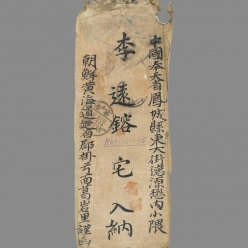 中國奉天省鳳城縣東大街德源懋內小隈
李遠鎔宅入納
朝鮮黃海道延白郡掛弓面葛岩里謹函